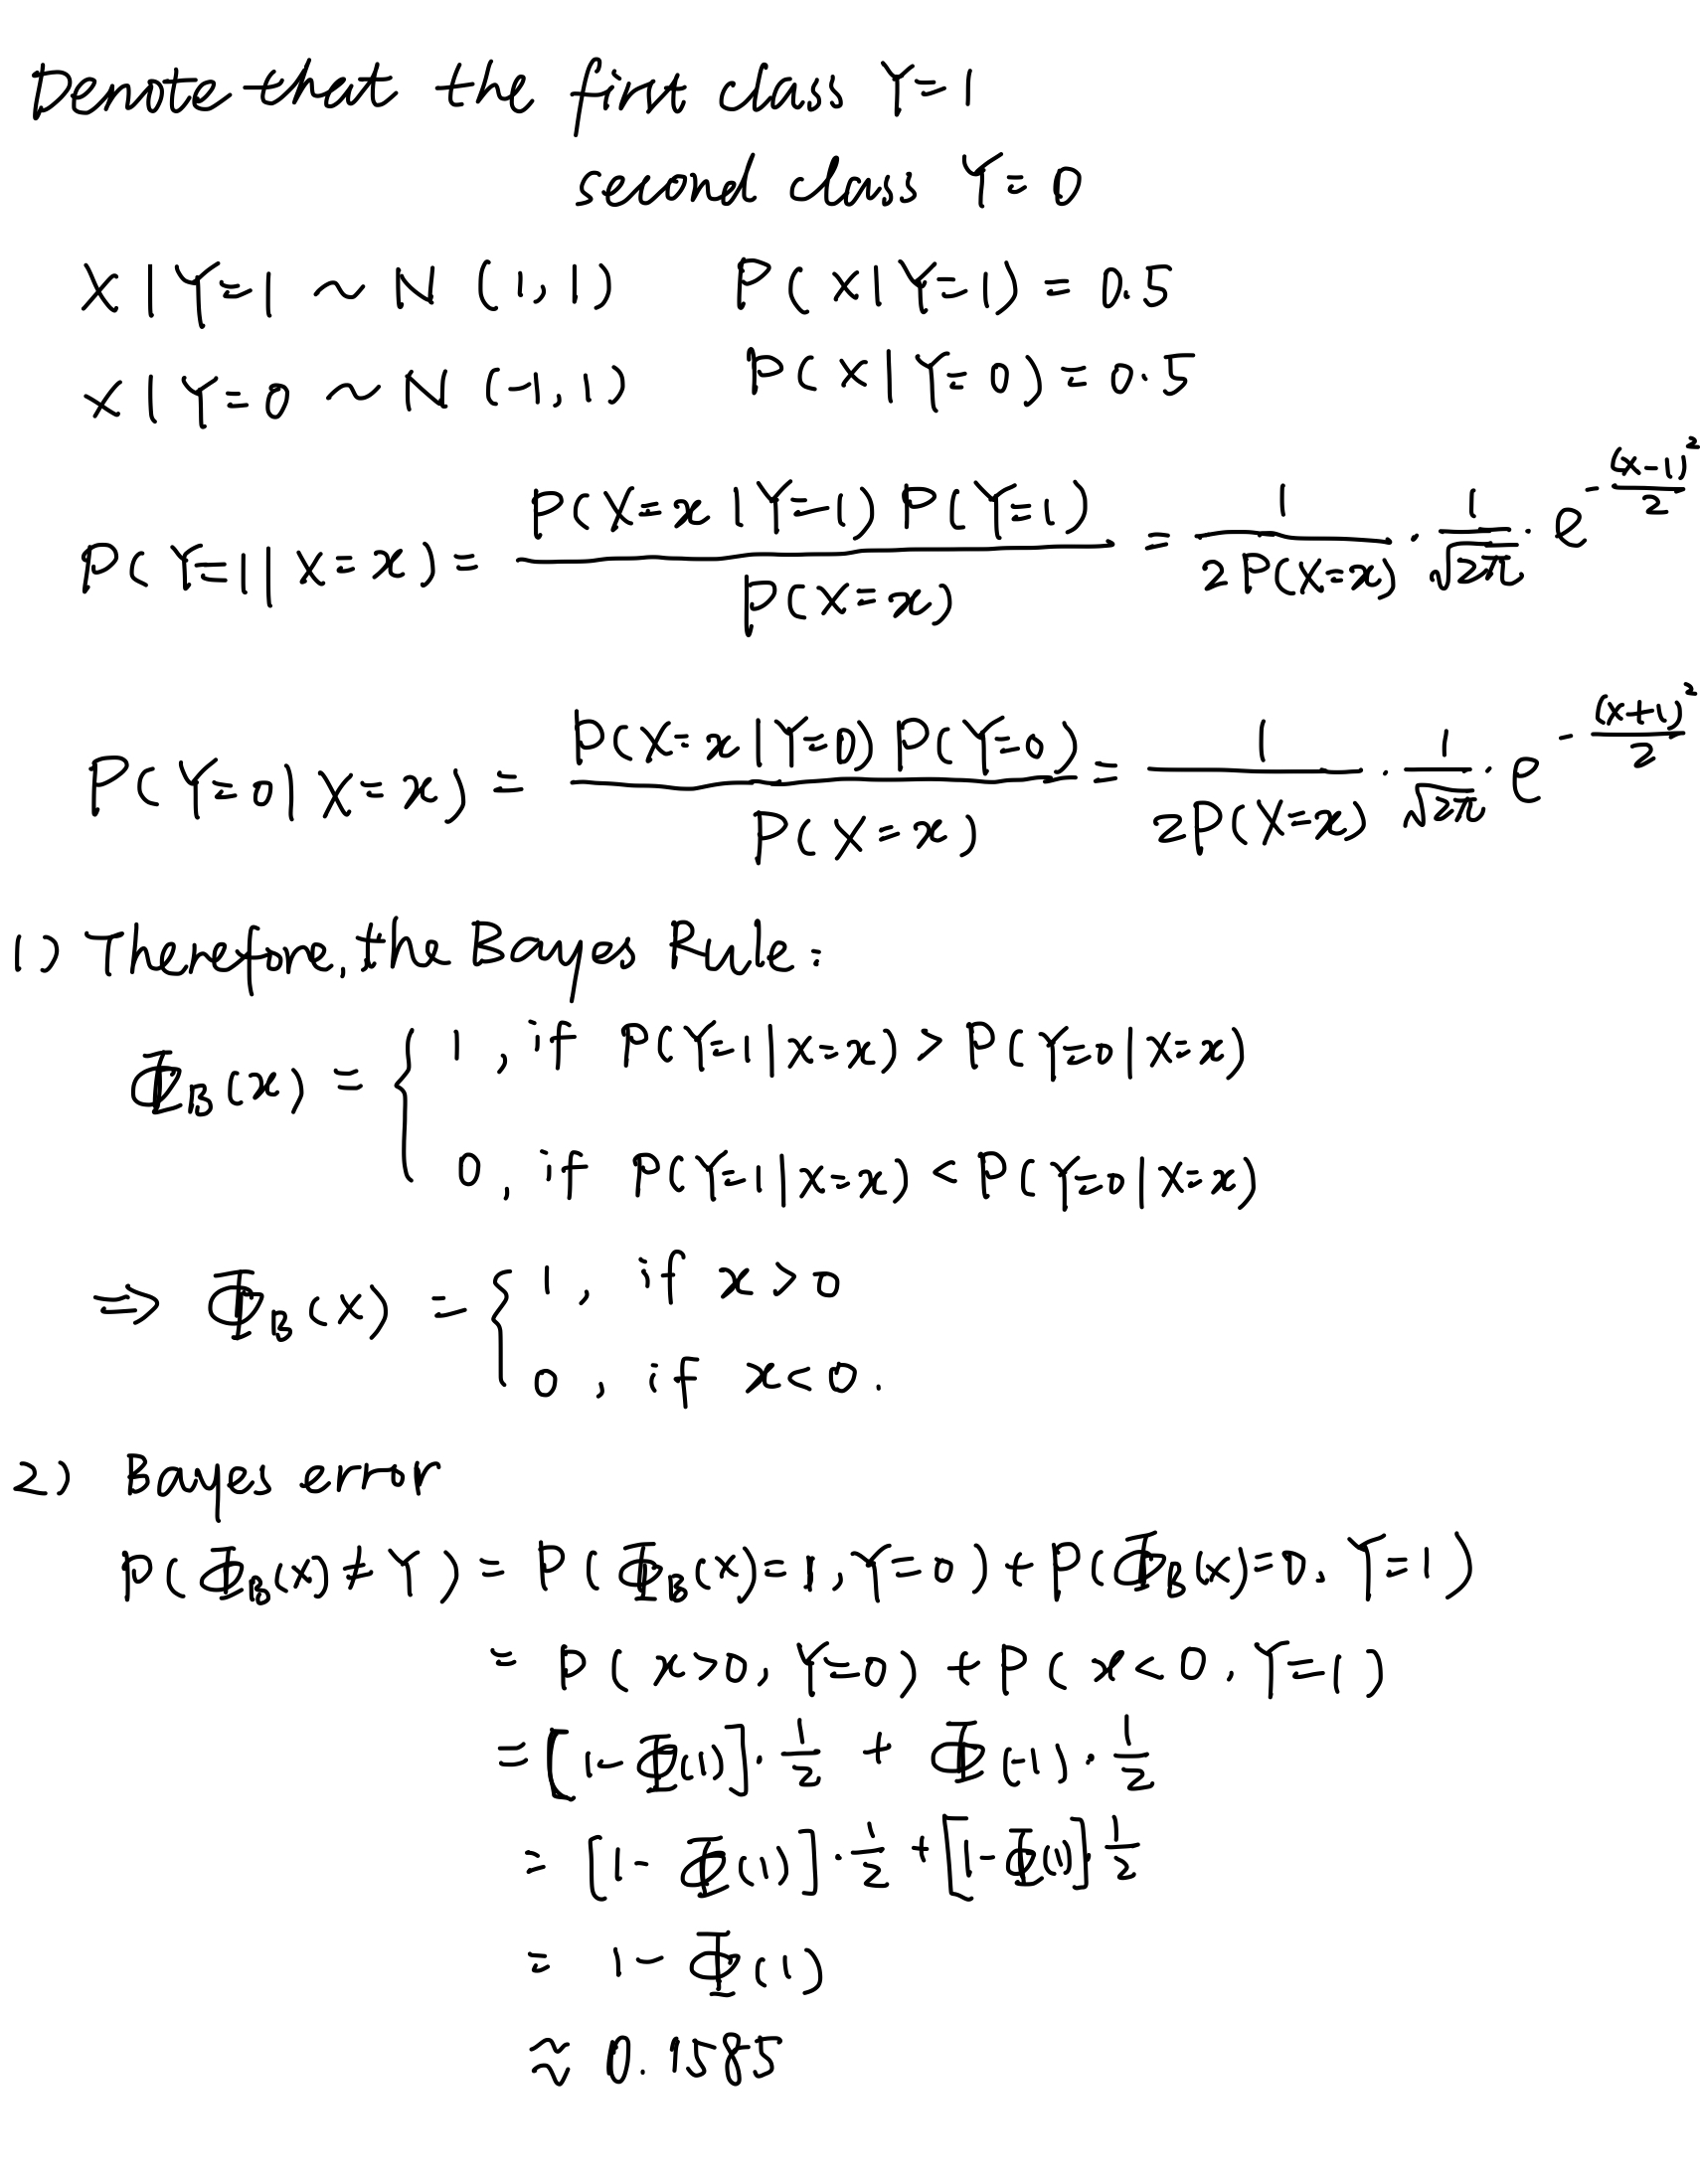 Denote that the first class Y=1
second class Y=0
X|Y=1 ~ N (1,1) P(X|Y=1) = 0.5
X|Y=0 ~ N (-1,1) P(X|Y=0) = 0.5
P(Y=1|X=x) = \frac{P(X=x|Y=1)P(Y=1)}{P(X=x)} = \frac{1}{2P(X=x)} · \frac{1}{\sqrt{2π}} · e^{-\frac{(x-1)^2}{2}}
P(Y=0|X=x) = \frac{P(X=x|Y=0)P(Y=0)}{P(X=x)} = \frac{1}{2P(X=x)} · \frac{1}{\sqrt{2π}} · e^{-\frac{(x+1)^2}{2}}
1) Therefore, the Bayes Rule:
Φ_B(x) = { 1, if P(Y=1|X=x) > P(Y=0|X=x)
0, if P(Y=1|X=x) < P(Y=0|X=x)
⇒ Φ_B(x) = { 1, if x>0
0, if x<0.
2) Bayes error
P(Φ_B(x) ≠ Y) = P(Φ_B(x)=1, Y=0) + P(Φ_B(x)=0, Y=1)
= P(x>0, Y=0) + P(x<0, Y=1)
= [1-Φ(1)] · \frac{1}{2} + Φ(-1) · \frac{1}{2}
= [1-Φ(1)] · \frac{1}{2} + [1-Φ(1)] \frac{1}{2}
= 1-Φ(1)
≈ 0.1585